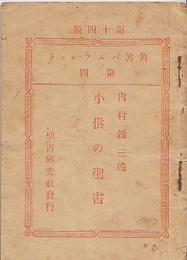 版四十第
角筈パムフレット
第四
内村鑑三選
小供の聖書
聖書研究社發行